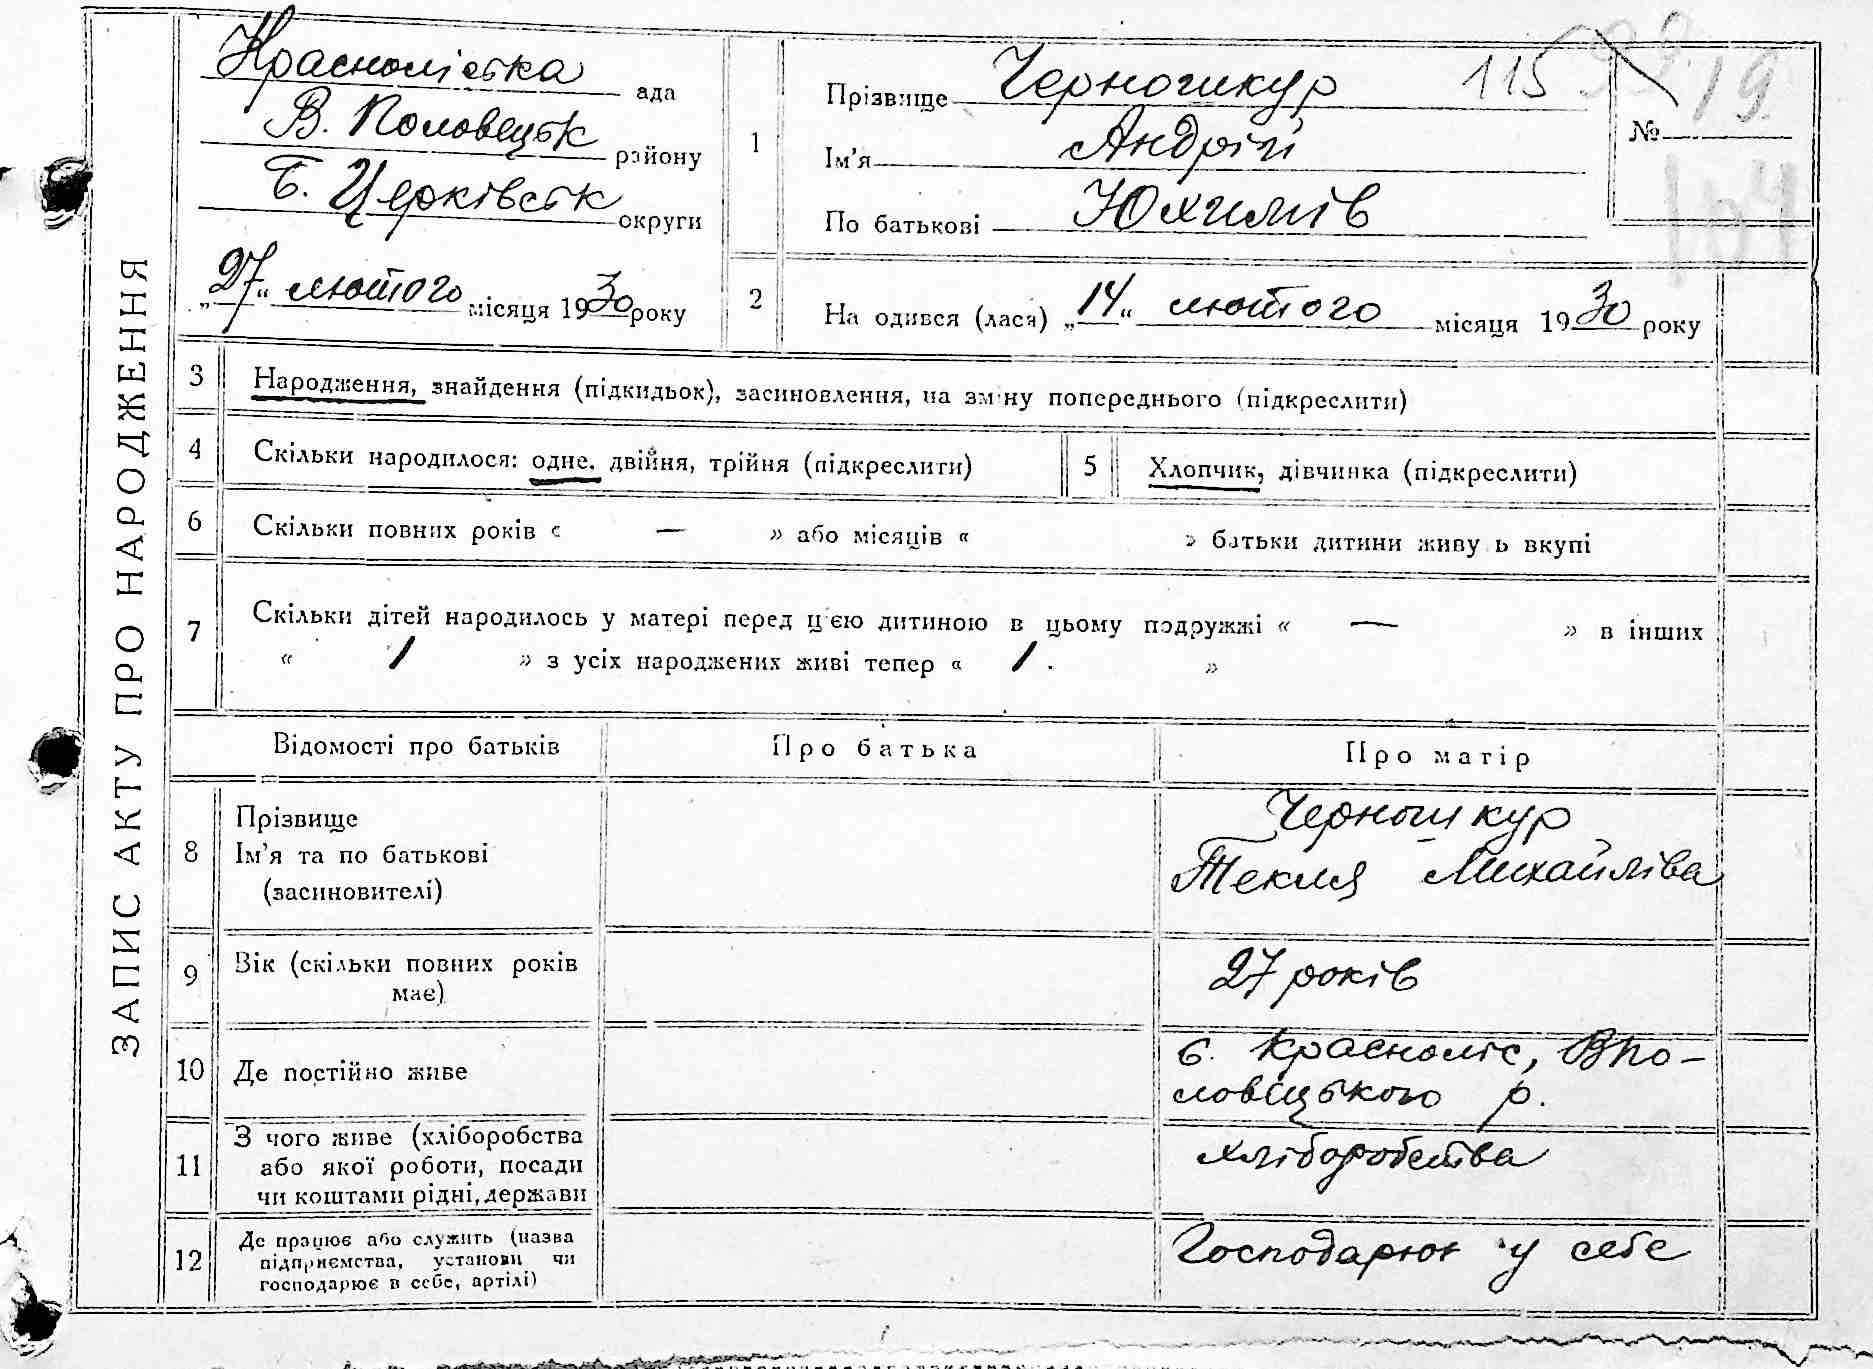 ЗАПИС АКТУ ПРО НАРОДЖЕННЯ
Краснолiська ада
В. Половецьк району
Б. Церківськ округи
„27“ лютого місяця 1930 року
1
Прізвище Черногикур
Ім’я Андрій
По батькові Юхимів
115
99
19
№
104
2
На одився (лася) „14“ лютого місяця 1930 року
3 Народження, знайдення (підкидьок), засиновлення, на зміну попереднього (підкреслити)
4 Скільки народилося: одне, двійня, трійня (підкреслити)
5 Хлопчик, дівчинка (підкреслити)
6 Скільки повних років « — » або місяців « » батьки дитини живу ь вкупі
7 Скільки дітей народилось у матері перед цією дитиною в цьому подружжі « — » в інших
« 1 » з усіх народжених живі тепер « 1. »
Відомості про батьків Про батька Про матір
8
Прізвище
Ім’я та по батькові
(засиновителі)
Черногикур
Текля Михайліва
9
Вік (скільки повних років
має)
27 років
10 Де постійно живе
с. Красноліс, В По-
ловецького р.
11
З чого живе (хліборобства
або якої роботи, посади
чи коштами рідні, держави
хліборобства
12
Де працює або служить (назва
підприємства, установи чи
господарює в себе, артілі)
Господарює у себе